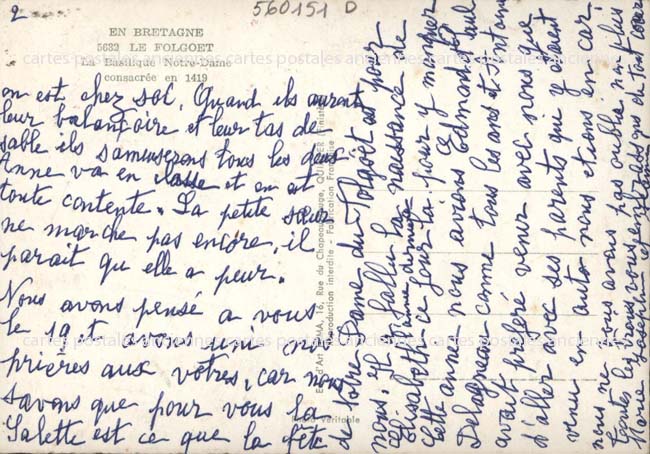 2
560151 D
EN BRETAGNE
5632 LE FOLGOET
La Basilique Notre-Dame
consacrée en 1419
cartes postales anciennes cartes postales anciennes
on est chez soi. Quand ils auront
leur balançoire et leur tas de
sable ils s'amuserons tous les deux
Anne va en classe et en est
toute contente. La petite sœur
ne marche pas encore, il
parait qu'elle a peur.
Nous avons pensé a vous
le 19 et avons unie nos
prières aux vôtres, car nous
savons que pour vous la
Salette est ce que la fête
de Notre Dame du Folgoët est pour
nous. Il a fallu la naissance de
Elisabeth ce jour là pour y manquer
l'année dernière
cette année nous avions Edmond et
Delagneau comme tous les ans et
avait préféré venir avec nous que
d'aller avec ses parents qui y avaient
venu en auto nous étions en car.
nous ne vous avons pas oublié non plus
Marie Josephe
16, Rue du Chapeau-Rouge, QUIMPER (Finistère)
Reproduction interdite - Fabrication Française
véritable